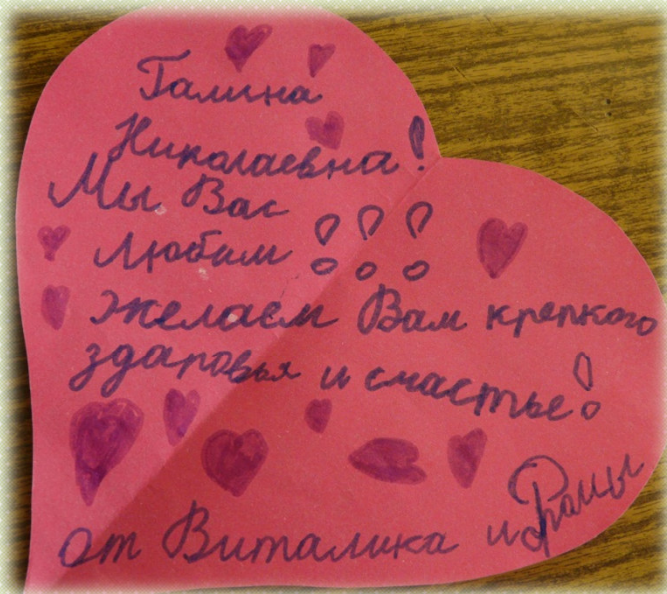 Галина
Николаевна!
Мы Вас
любим!!!
Желаем Вам крепкого
здаровья и счастье!
от Виталика и Ромы